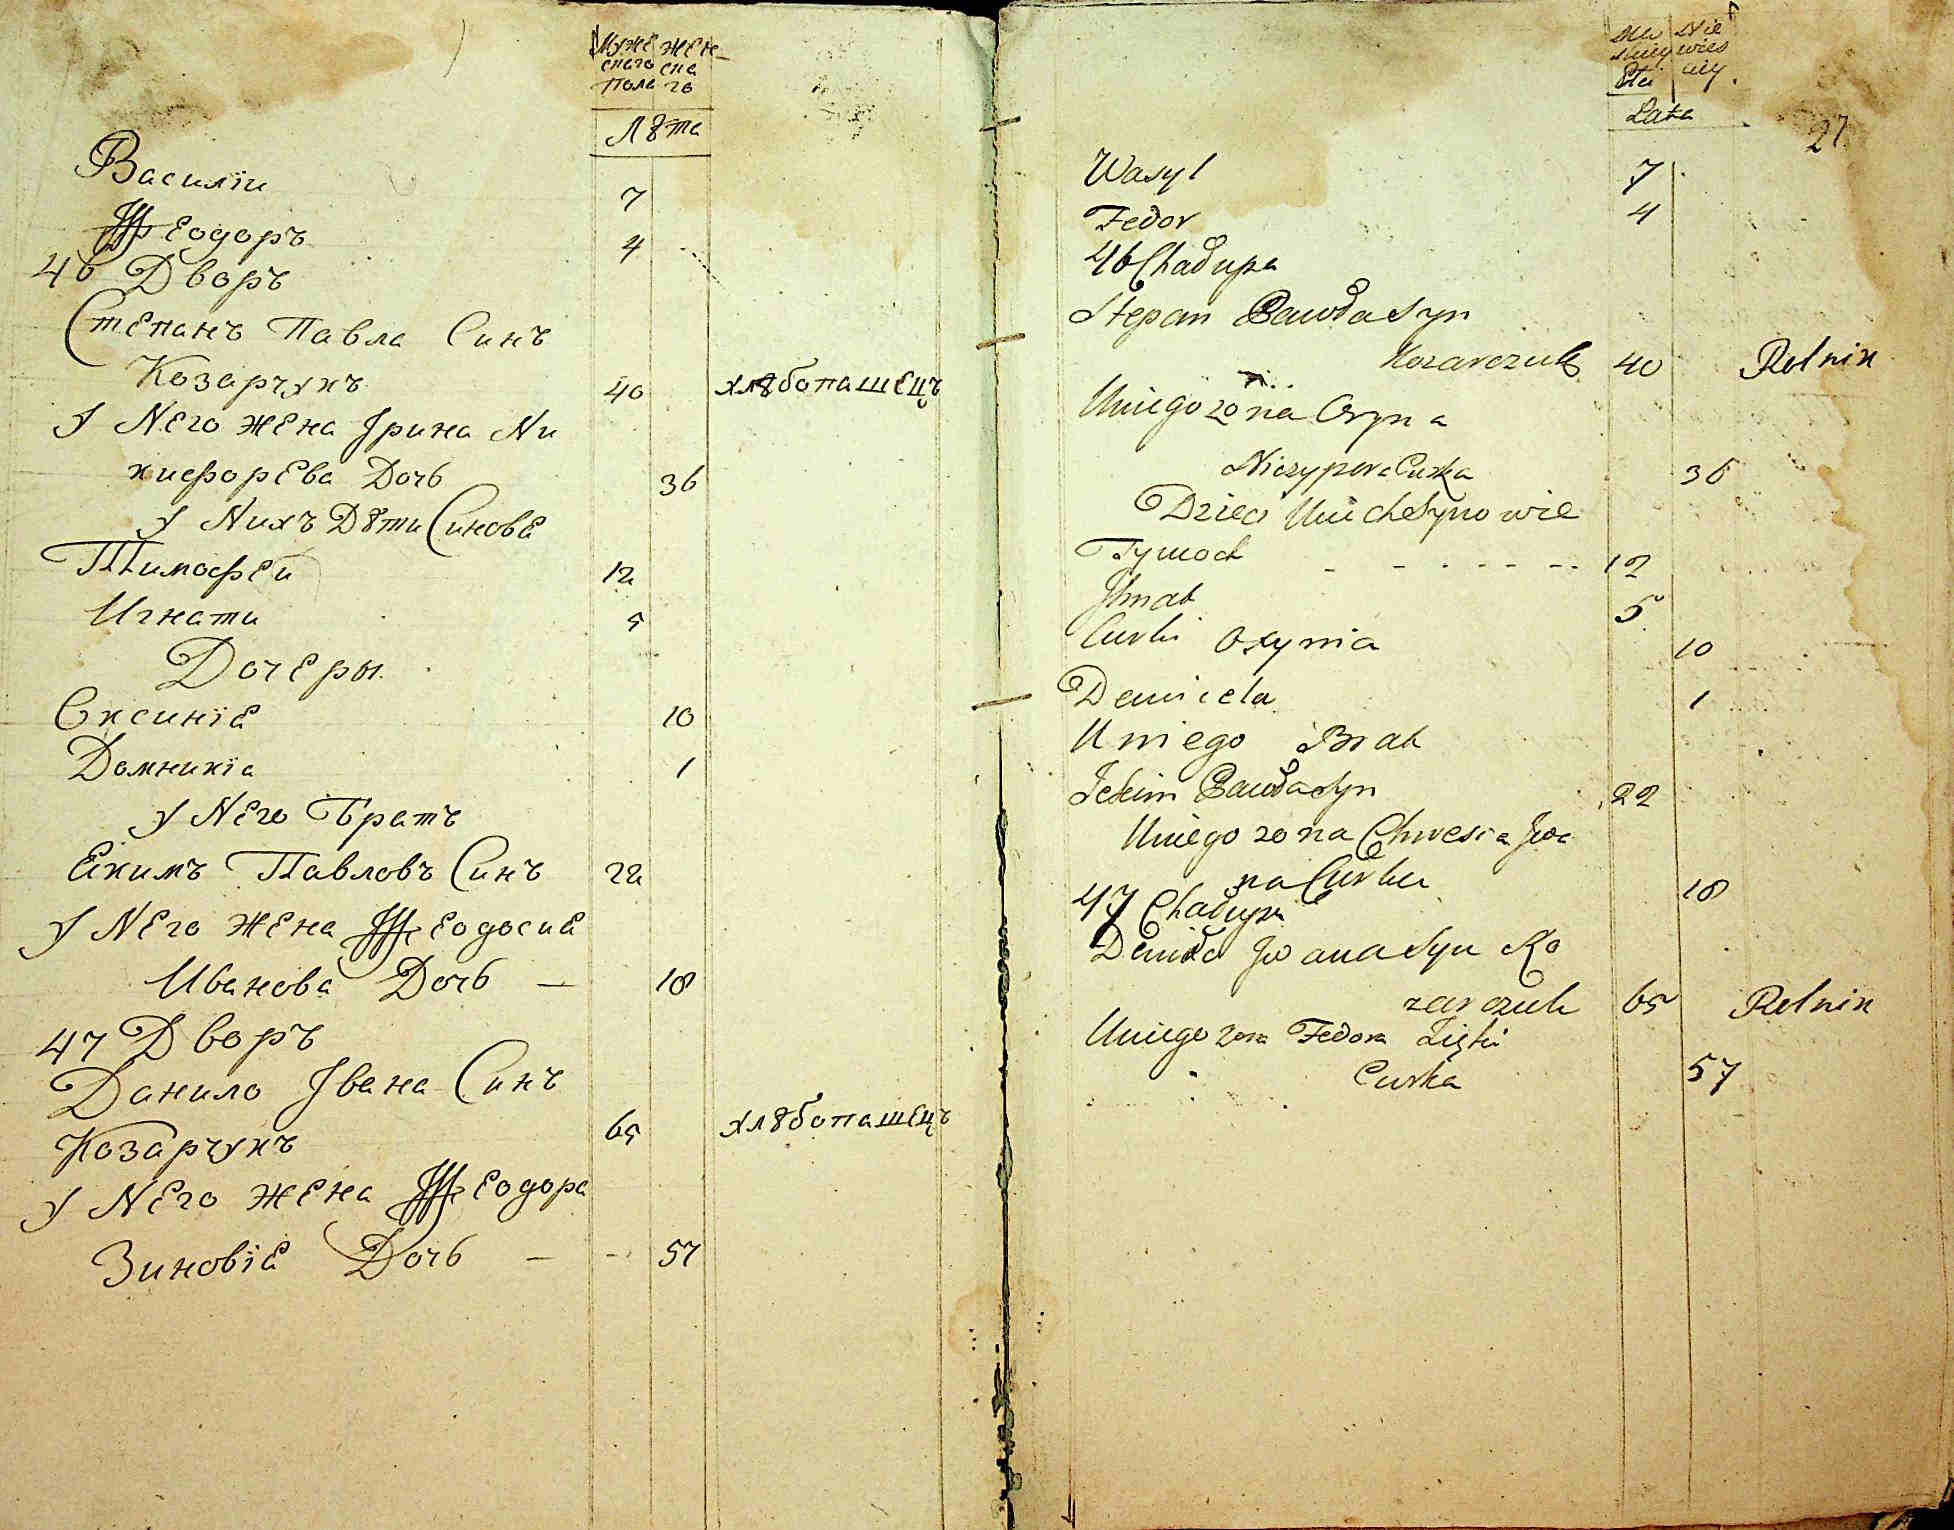 Муже Жен
скаго ска
пола го
Лѣта
Василіи 7
Ѳеодоръ 4
46 Дворъ
Степанъ Павла Синъ
Козарчукъ 40 хлѣбопашецъ
У Него жена Ірина Ни
кифорева Дочь 36
У Нихъ Дѣти Синове
Тимофеи 12
Игнати 5
Дочеры
Оксиніе 10
Домникіа 1
У Него Братъ
Екимъ Павловъ Синъ 22
У Него жена Ѳеодосие
Иванова Дочь — 18
47 Дворъ
Данило Івана Синъ
Козарчукъ 65 хлѣбопашецъ
У Него жена Ѳеодора
Зиновіе Дочь — 57
Nie
wies
Lata
27
Wasyl 7
Fedor 4
46 Chałupa
Stepan Pawła Syn
Kozarczuk 40 Rolnik
U niego zona Oryna
Niczypora Curka 36
Dzieci U nich Synowie
Tymoch - - - - - - 12
Ihnat 5
Curki Oxynia 10
Demicela 1
U niego Brat
Jekim Pawła Syn 22
U niego zona Chwesia Jwa
na Curka 18
47 Chałupa
Daniło Jwana Syn Ko
zarczuk 65 Rolnik
U niego zona Fedora Zięki
Curka 57